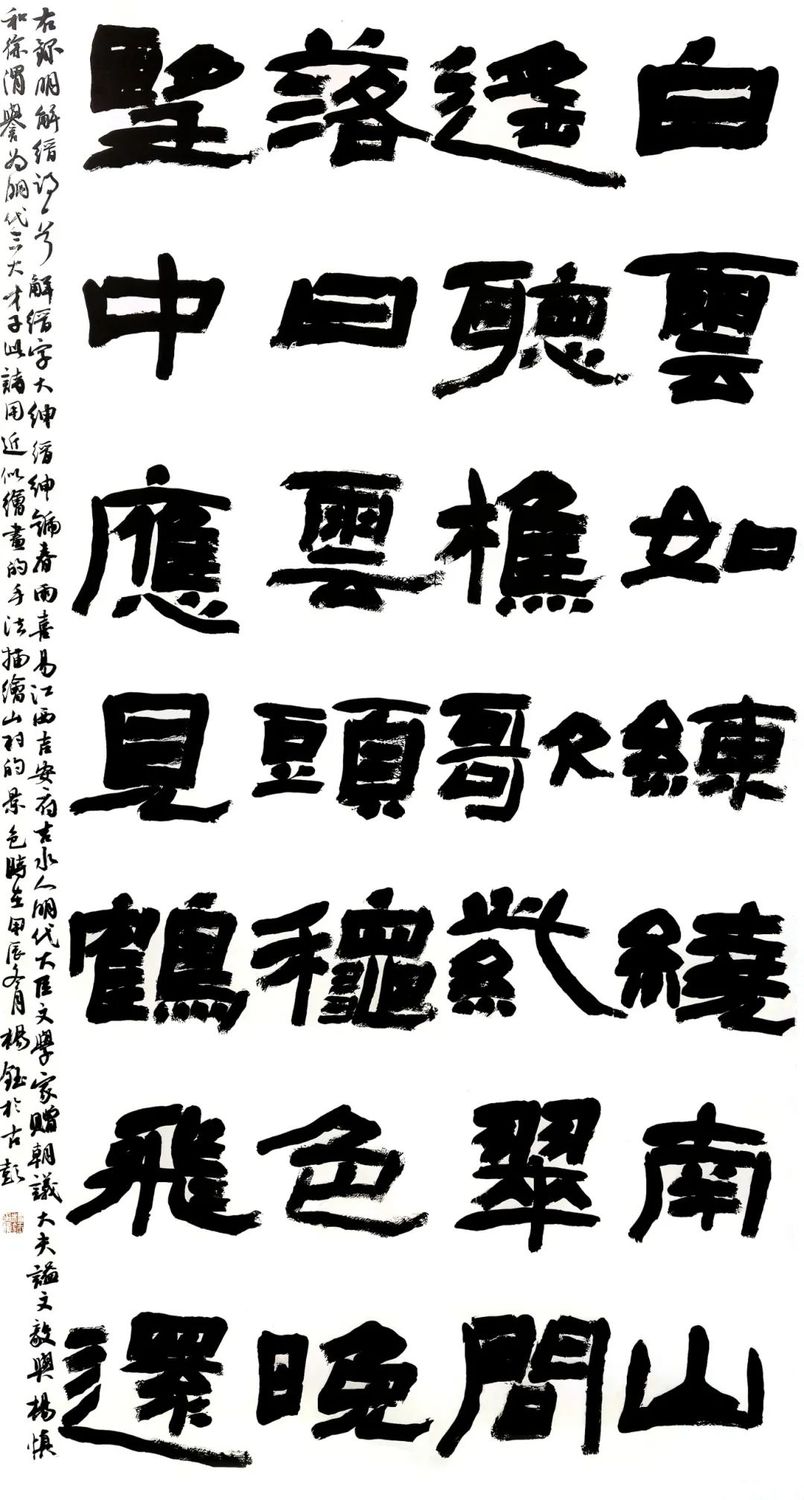 白雲如練繞南山
遥聽樵歌紫翠間
落日雲頭穐色晚
望中應見鶴飛還
右錄明解縉詩一首解縉字大紳縉紳號春雨喜易江西吉安府吉水人明代大臣文學家贈朝議大夫謚文毅與楊慎
和徐渭譽为明代三大才子此詩用近似繪畫的手法描繪山村的景色時在甲辰冬月楊鈺於古彭